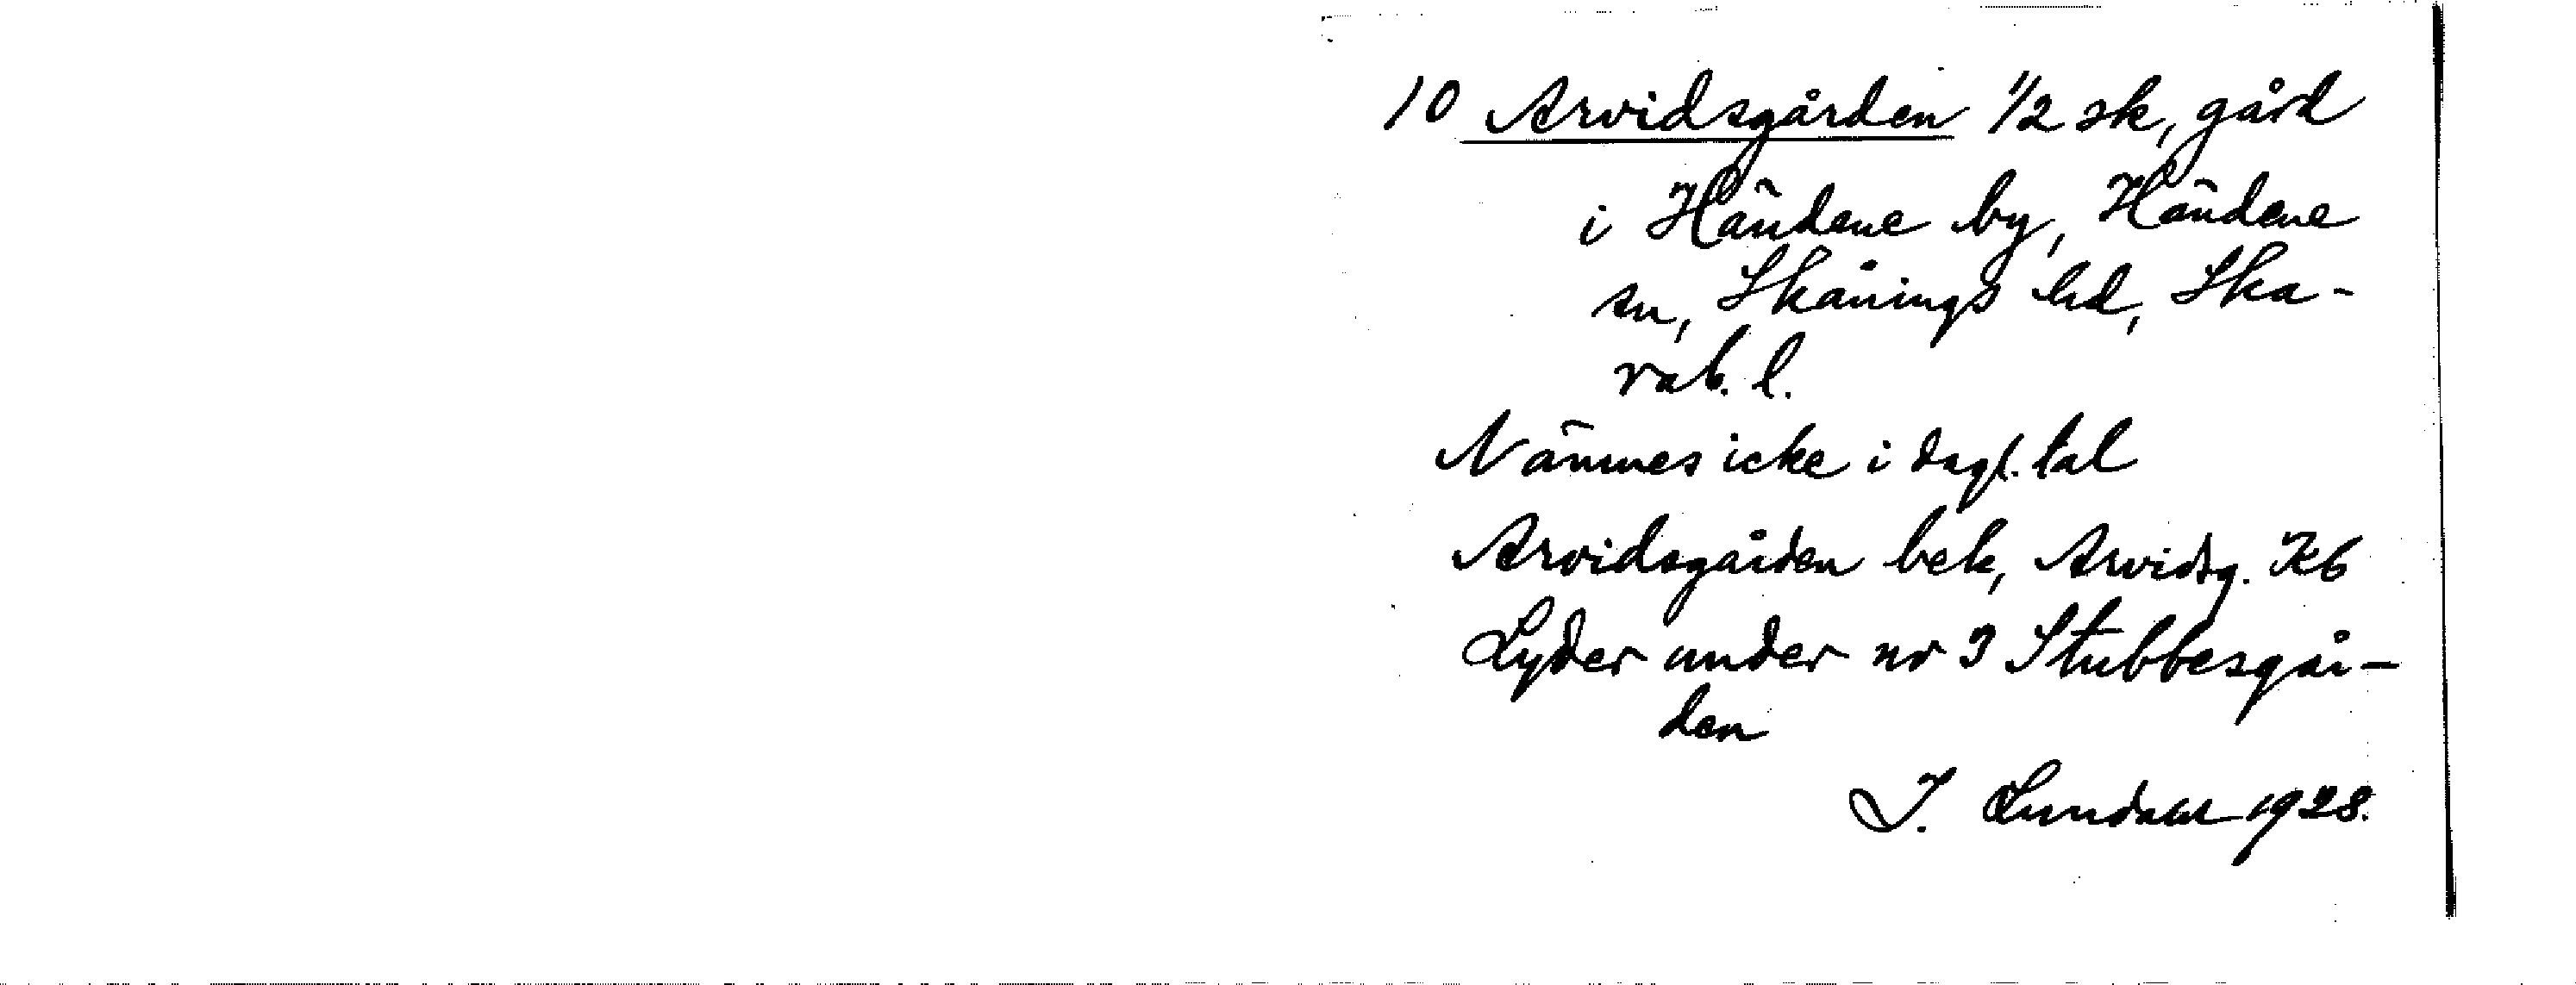 10 Arvidsgården 1/2 sk, gård
i Händene by, Händene
sn, Skånings hd, Ska-
rab. l.
Nämnes icke i dagl. tal
Arvidsgården bek, Arvidsg. Kb
Lyder under nr 3 Stubbesgår-
den
I. Lundahl 1928.